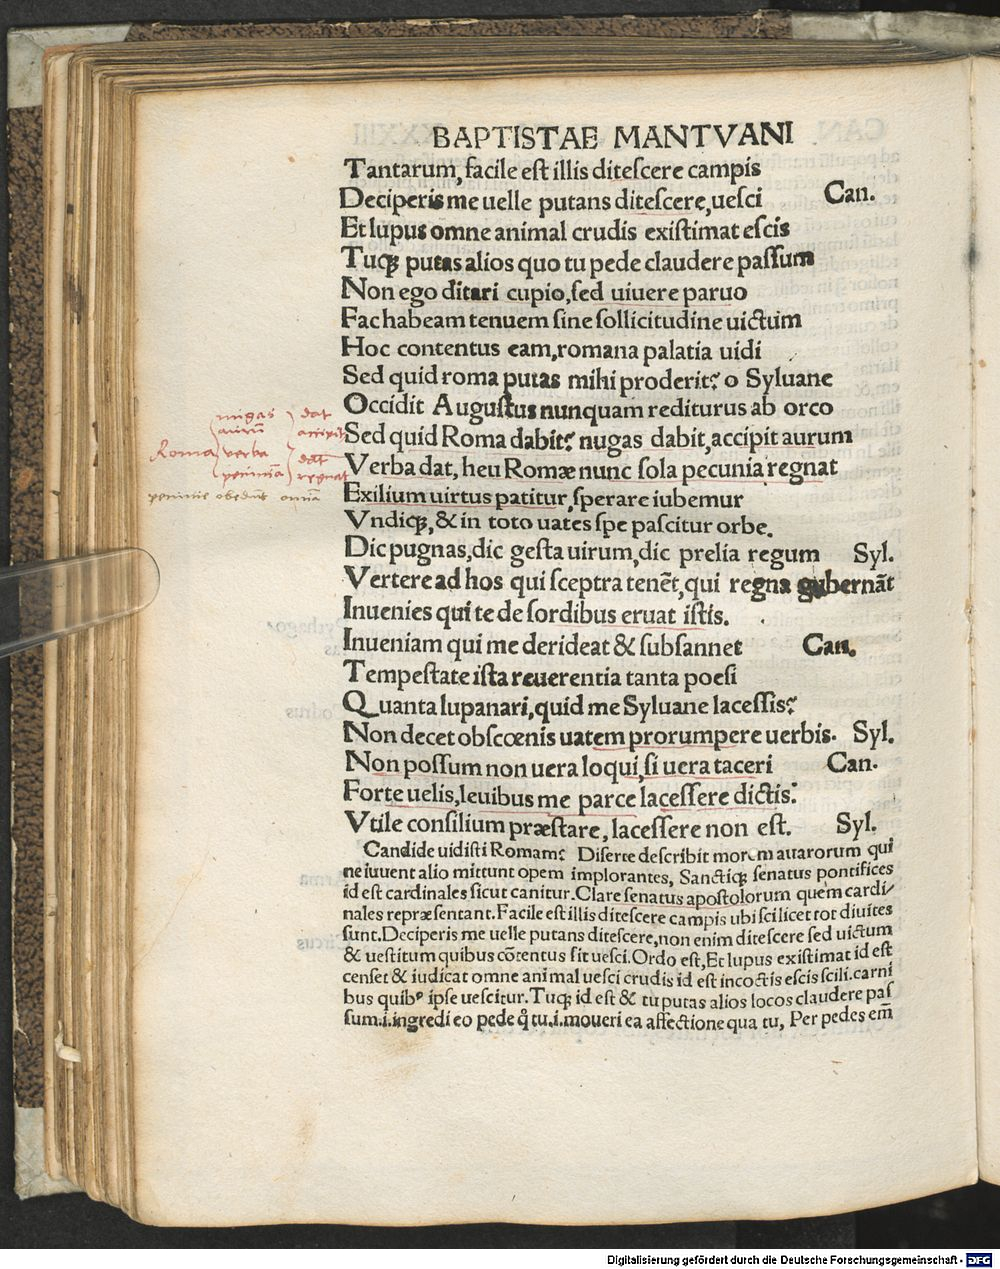 BAPTISTAE MANTVANI
Tantarum, facile est illis ditescere campis
Deciperis me uelle putans ditescere, uesci Can.
Et lupus omne animal crudis existimat escis
Tuq; putas alios quo tu pede claudere passum
Non ego ditari cupio, sed uiuere paruo
Fac habeam tenuem sine sollicitudine uictum
Hoc contentus eam, romana palatia uidi
Sed quid roma putas mihi proderit? o Syluane
Occidit Augustus nunquam rediturus ab orco
Sed quid Roma dabit? nugas dabit, accipit aurum
Verba dat, heu Romæ nunc sola pecunia regnat
Exilium uirtus patitur, sperare iubemur
Vndiq;, & in toto uates spe pascitur orbe.
Dic pugnas, dic gesta uirum, dic prelia regum Syl.
Vertere ad hos qui sceptra tenẽt, qui regna gubernãt
Inuenies qui te de sordibus eruat istis.
Inueniam qui me derideat & subsannet Can.
Tempestate ista reuerentia tanta poesi
Quanta lupanari, quid me Syluane lacessis?
Non decet obscœnis uatem prorumpere uerbis. Syl.
Non possum non uera loqui, si uera taceri Can.
Forte uelis, leuibus me parce lacessere dictis.
Vtile consilium præstare, lacessere non est. Syl.
Candide uidisti Romam? Diserte describit morem auarorum qui
ne iuuent alio mittunt opem implorantes, Sanctiq; senatus pontifices
id est cardinales sicut canitur. Clare senatus apostolorum quem cardi/
nales repræsentant. Facile est illis ditescere campis ubi scilicet tot diuites
sunt. Deciperis me uelle putans ditescere, non enim ditescere sed uictum
& uestitum quibus cõtentus sit uesci. Ordo est, Et lupus existimat id est
censet & iudicat omne animal uesci crudis id est incoctis escis scili. carni
bus quibꝰ ipse uescitur. Tuq; id est & tu putas alios locos claudere pas
sum .i. ingredi eo pede q̊ tu .i. moueri ea affectione qua tu, Per pedes em̃
Roma
nugas dat
aurũ accipit
verba dat
pecuniã regnat
Digitalisierung gefördert durch die Deutsche Forschungsgemeinschaft - DFG